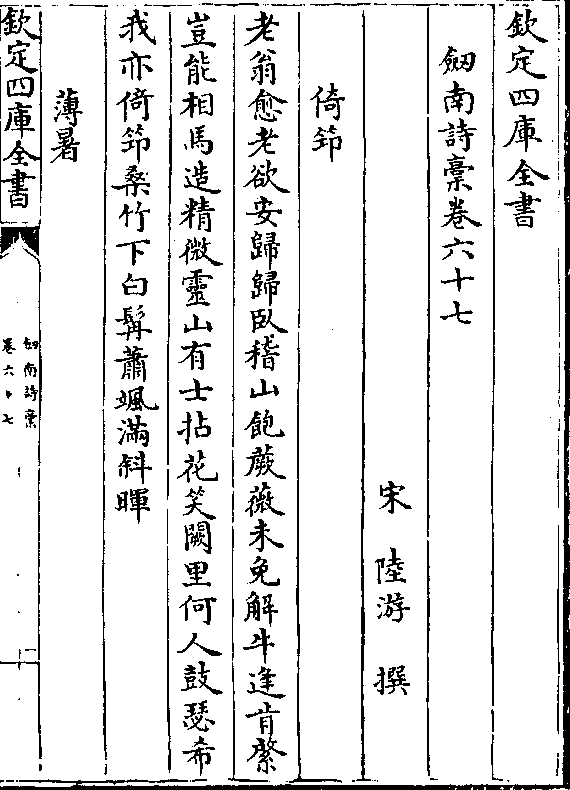 欽定四庫全書
劔南詩稾卷六十七
宋 陸游 撰
倚筇
老翁愈老欲安歸歸臥稽山飽蕨薇未免解牛逢肯綮
豈能相馬造精微靈山有士拈花笑闕里何人鼓瑟希
我亦倚筇桑竹下白髯蕭颯滿斜暉
薄暑
欽定四庫全書
劔南詩稾
卷六十七
一